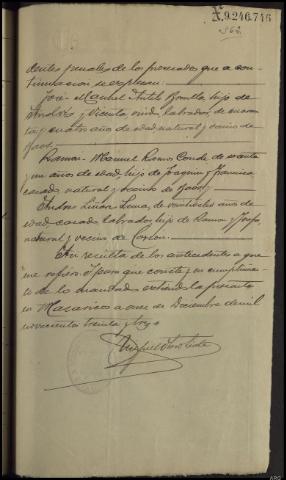 N.9.246.746
dentes penales de los procesados que a con-
tinuacion se expresan:
José Manuel Antelo Bonilla, hijo de
Andrés y Vicenta, viudo, labrador, de cuaren-
ta y cuatro años de edad, natural y vecino de
Ramon Manuel Ramos Conde de treinta
y un años de edad, hijo de Joaquin y Francisca
casado, natural y vecino de
Andres Linares Lema, de veintidos años de
edad, casado, labrador, hijo de Ramon y Josefa,
natural y vecino de
Asi resulta de los antecedentes a que
me refiero. Y para que conste y en cumplimien-
to de lo mandado extiendo la presente
en Mazaricos a once de Diciembre de mil
novecientos treinta y tres